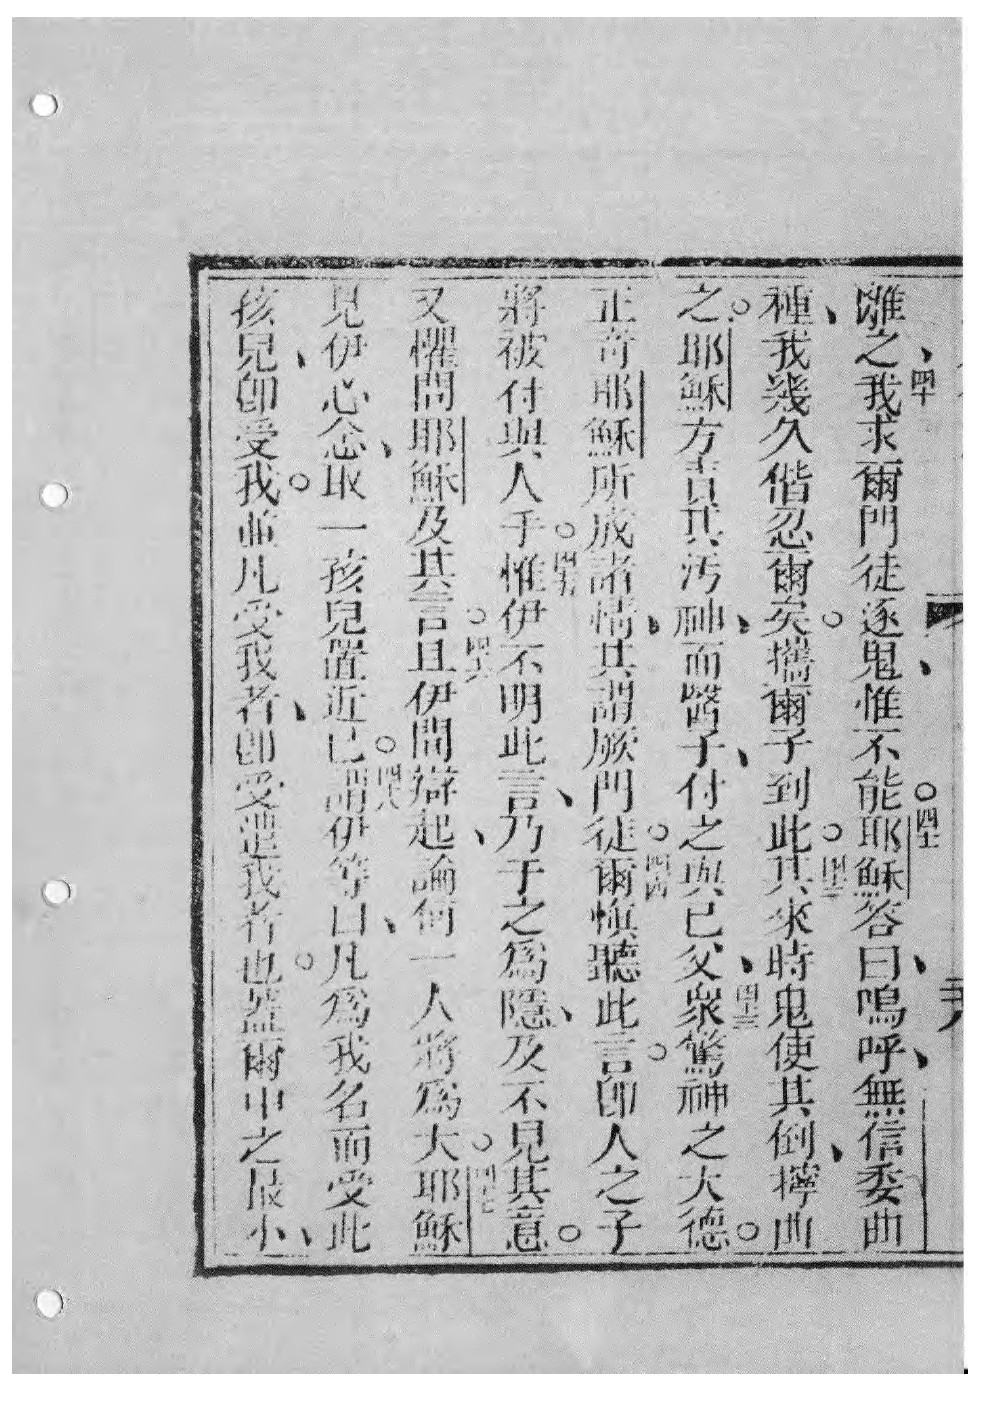 離之、我求爾門徒逐鬼、惟不能。耶穌答曰、嗚呼、無信委曲
種、我幾久偕忍爾矣。攜爾子到此。其來時鬼使其倒、擰曲
之。耶穌方責其污神、而醫子、付之與已父、衆驚神之大德。
正奇耶穌所成諸情、其謂厥門徒。爾慎聽此言。即人之子
將被付與人手。惟伊不明此言、乃于之為隱、及不見其意。
又懼問耶穌及其言。且伊間辯起、論何一人將為大。耶穌
見伊心念、取一孩兒置近已。謂伊等曰、凡為我名而受此
孩兒、即受我。並凡受我者、即受遣我者也。蓋爾中之最小、
四十
四十一
四十二
四十三
四十四
四十五
四十六
四十七
四十八